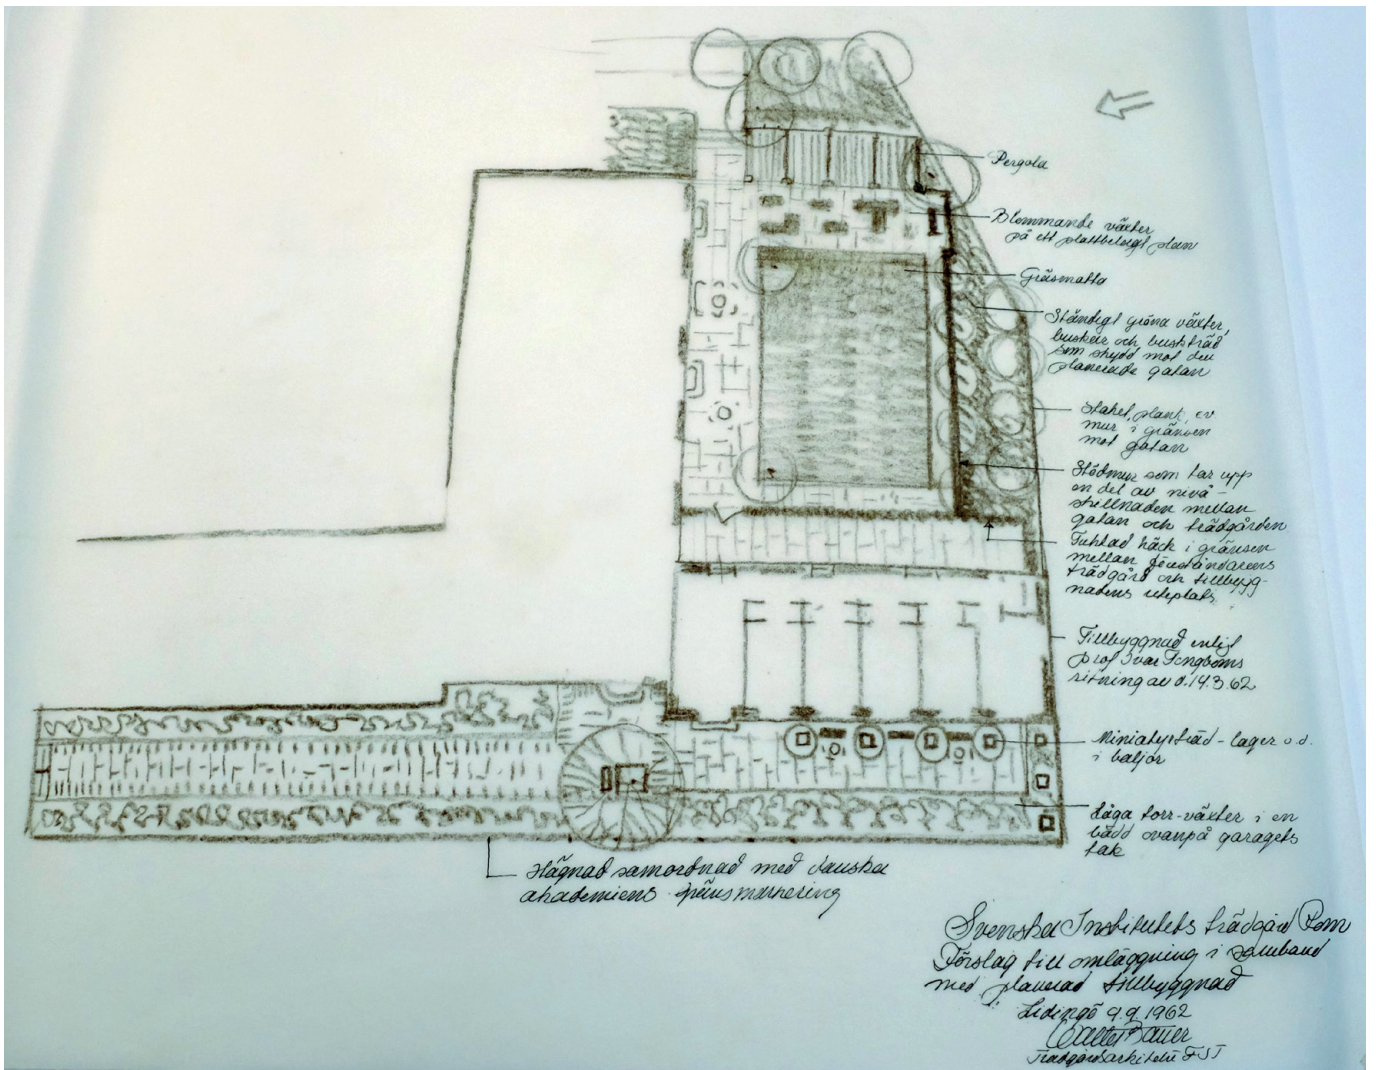 Pergola
Blommande växter
på ett plattbelagt plan
Gräsmatta
Ständigt gröna växter,
buskar och buskträd
som skydd mot den
planerade gatan
Staket, plank, ev
mur i gränsen
mot gatan
Stödmur som tar upp
en del av nivå-
skillnaden mellan
gatan och trädgården
Tuktad häck i gränsen
mellan föreståndarens
trädgård och tillbygg-
nadens uteplats
Tillbyggnad enligt
prof Ivar Tengboms
ritning av d. 14.3.62
Miniatyrträd - lager o.d.
i baljor
Låga torr-växter i en
bädd ovanpå garagets
tak
Hägnad samordnad med danska
akademiens gränsmarkering
Svenska Institutets trädgård Rom
Förslag till omläggning i samband
med planerad tillbyggnad
Lidingö 9.9.1962
Walter Bauer
Trädgårdsarkitekt FST